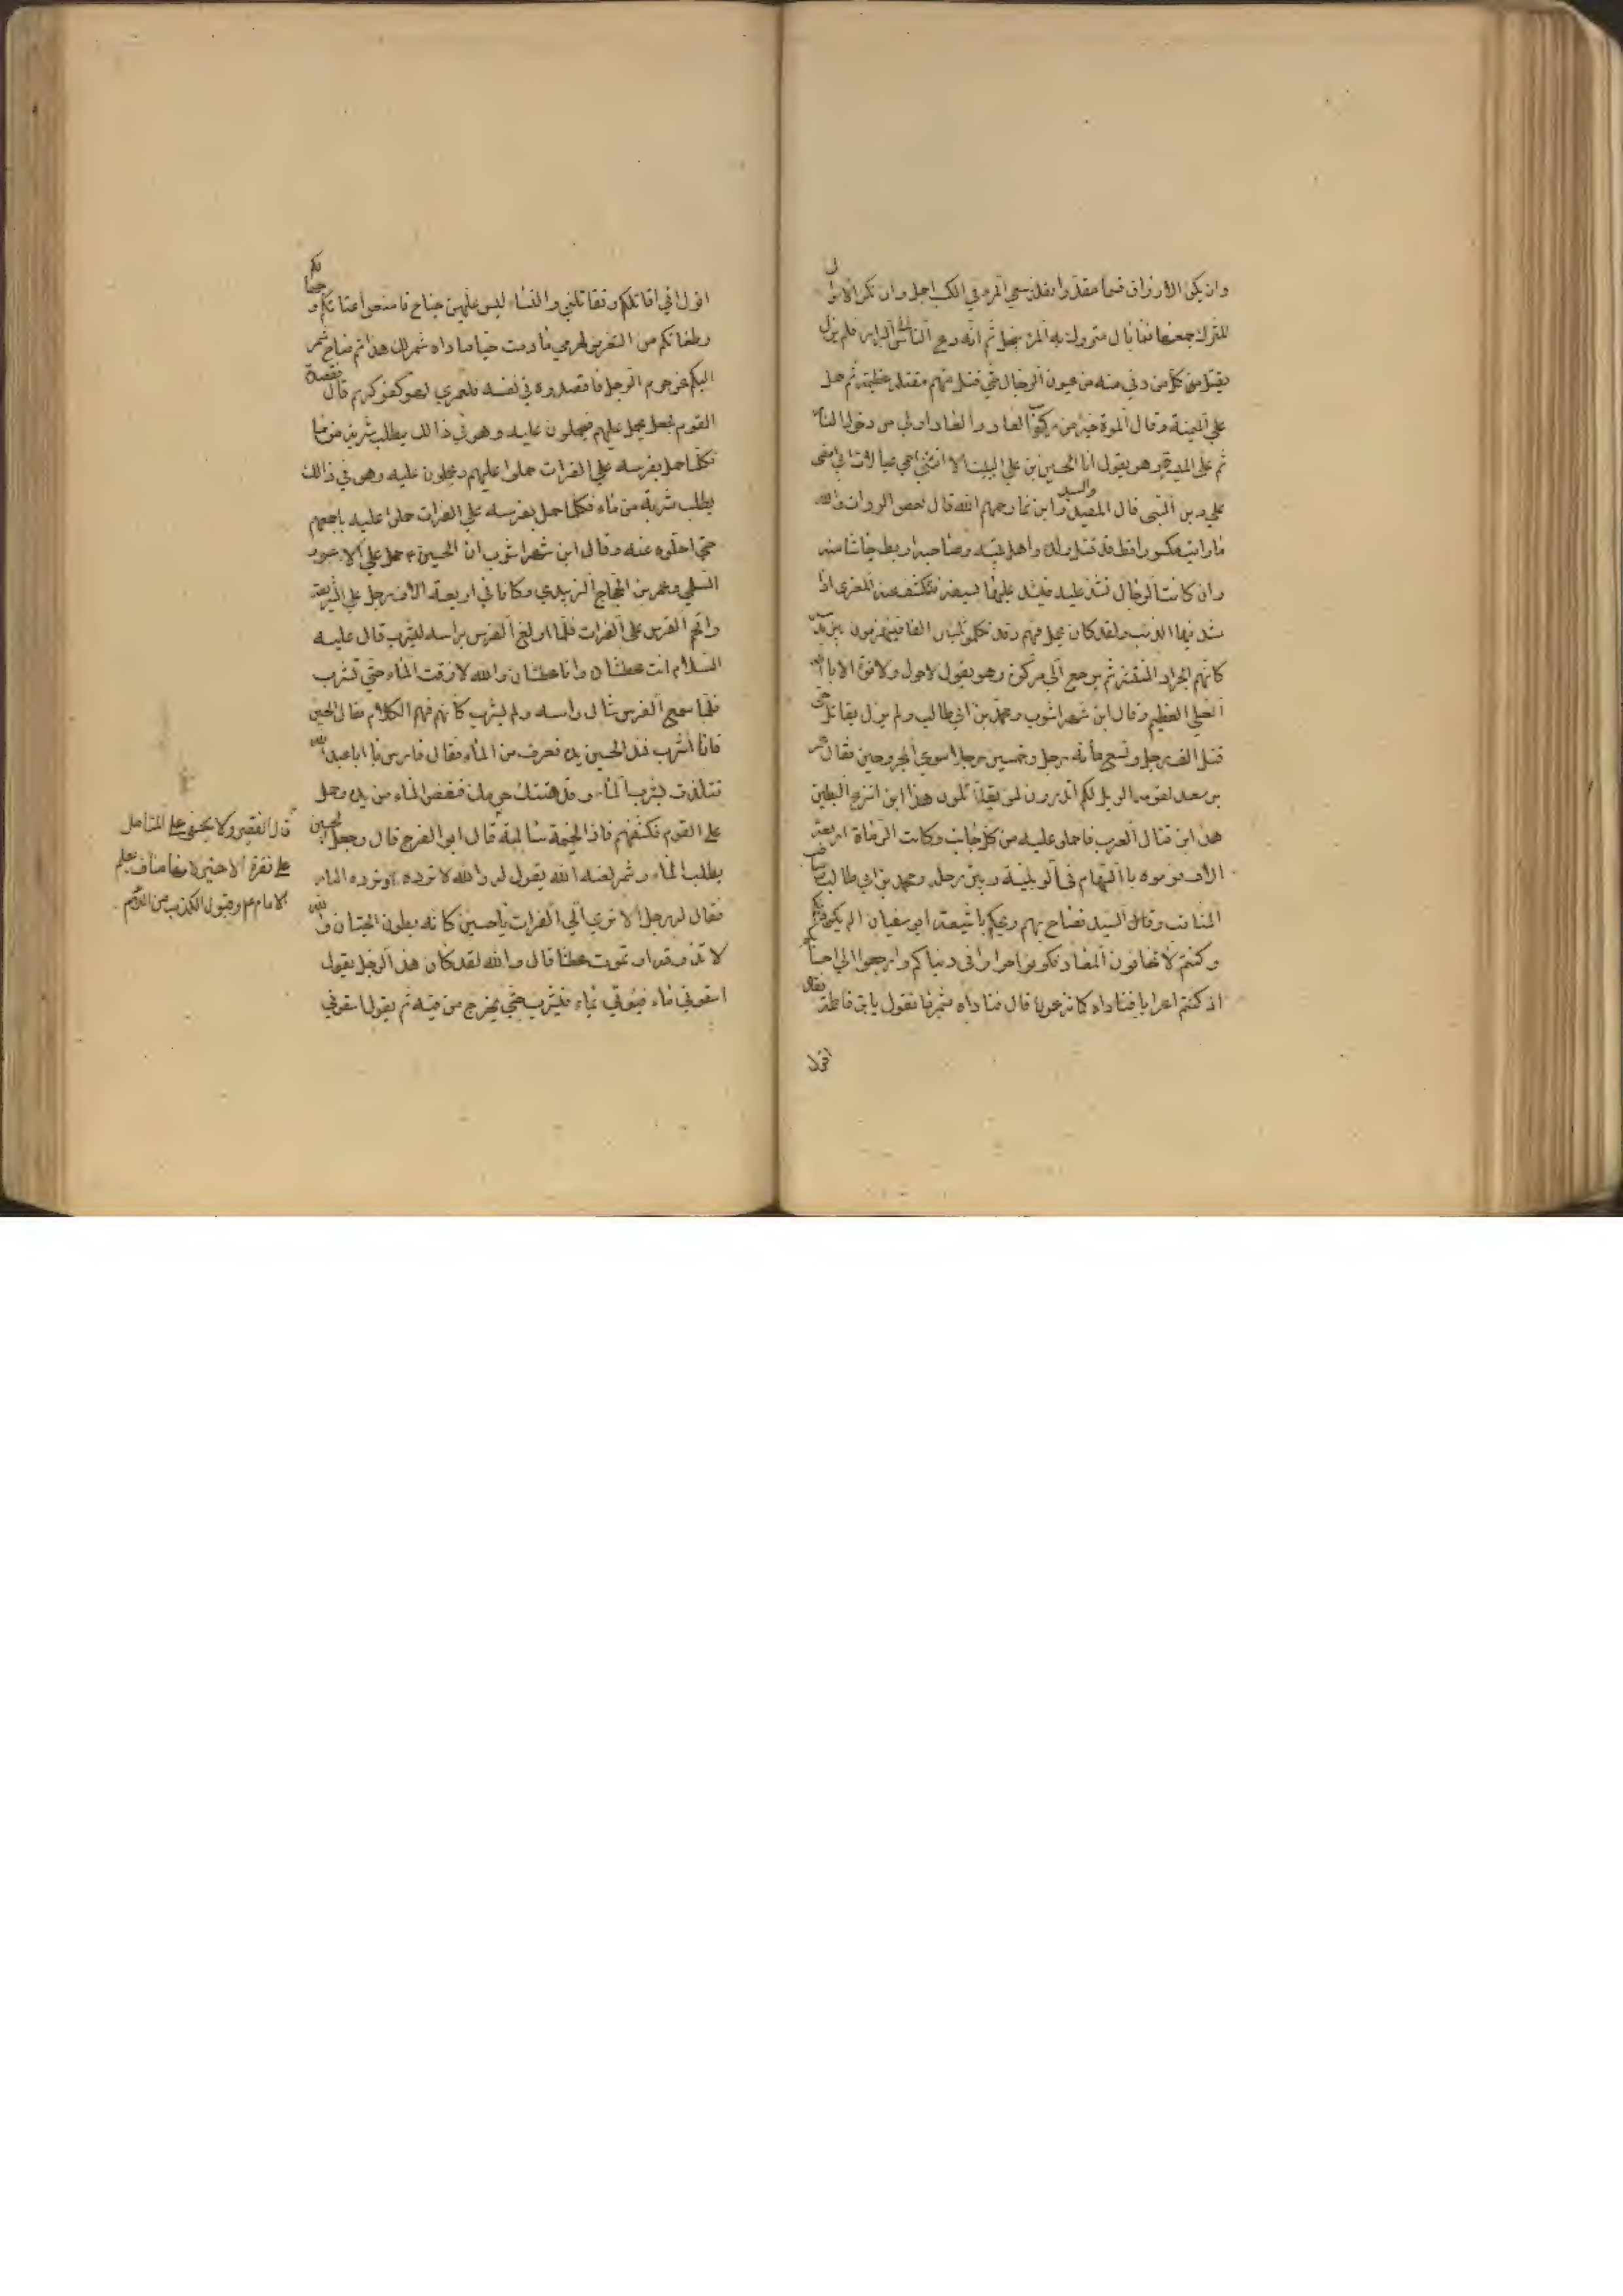 وان يكن الارزاق قسما مقدرا فقلة سعي المرء في الكسب اجمل وان تكن الاموال
للترك جمعها فما بال متروك به المرء يبخل ثم انه دعى الناس الى البراز فلم يزل
يقتل كل من دنى منه من عيون الرجال حتى قتل منهم مقتلة عظيمة ثم حمل
على الميمنة وقال الموت خير من ركوب العار والعار اولى من دخول النار
ثم على الميسرة وهو يقول انا الحسين بن علي اليت الا انثني احمي عيالات ابي امضي
على دين النبي قال المفيد والسيد وابن نما رحمهم الله قال بعض الروات والله
ما رايت مكسورا قط قد قتل ولده واهل بيته وصاحبه اربط جاشا منه
وان كانت الرجال تشد عليه فيشد عليها بسيفه فتكشف عنه المعزى اذا
شد فيها الذئب ولقد كان يحمل فيهم وقد تكملو ثلثين الفا فينهزمون بين يديه
كانهم الجراد المنتشر ثم يرجع الى مركزه وهو يقول لا حول ولا قوة الا بالله
العلي العظيم وقال ابن شهراشوب ومحمد بن ابي طالب ولم يزل يقاتل حتى
قتل الف رجل وتسع مائة رجل وخمسين رجلا سوى المجروحين فقال عمر
بن سعد لقومه الويل لكم اتدرون لمن تقاتلون هذا ابن انزع البطين
هذا ابن قتال العرب فاحملو عليه من كل جانب وكانت الرماة اربعة
الاف فرموه باالسهام وقال ومحمد بن ابي طالب صاحب
المناقب وقال السيد فصاح بهم ويحكم يا شيعة ابي سفيان ان لم يكن لكم
وكنتم لا تخافون المعاد فكونوا احرارا في دنياكم وارجعوا الى احسابكم
اذ كنتم اعرابا فناداه قال فناداه شمر ما تقول يا بن فاطمة فقال
اقول
اقول اني اقاتلكم وتقاتلني والنساء ليس عليهن جناح فامنعوا عتاتكم و جهالكم
وطغاتكم من التعرض لحرمي ما دمت حيا فناداه شمر لك هذا ثم صاح شمر
اليكم عن حرم الرجل فاقصدوه في نفسه فلعمري لهو كفو كريم قال فقصده
القوم فجعل يحمل عليهم فيحملون عليه وهو في ذالك يطلب شربة من ما
فكلما حمل بفرسه على الفرات حملوا عليهم ويحملون عليه وهو في ذالك
يطلب شربة من ماء فكلما حمل بفرسه على الفرات حملوا عليه باجمعهم
حتى احلوه عنه وقال ابن شهراشوب ان الحسين ع حمل على الاعور
السلمي وعمر بن الحجاج الزبيدي وكانا في اربعة الاف رجل على الشريعة
واقحم الفرس على الفرات فلما اولغ الفرس براسه ليشرب قال عليه
السلام انت عطشان وانا عطشان والله لا ذقت الماء حتى تشرب
فلما سمع الفرس شال راسه ولم يشرب كانه فهم الكلام فقال الحسين
فانا اشرب فمد الحسين يده فغرف من الماء فقال فارس يا ابا عبد الله
تتلذذ بشرب الماء وقد هتكت حرمك فنفض الماء من يده وحمل
على القوم فكشفهم فاذ الخيمة سالمة قال ابو الفرج قال وجعل الحسين
يطلب الماء وشمر لعنه الله يقول له والله لا ترده او ترد النار
فقال له رجل الا ترى الى الفرات يا حسين كانه بطون الحيتان والله
لا تذوقه او تموت عطشا قال والله لقد كان هذا الرجل يقول
اسقوني ماء فيؤتى بماء فيشرب حتى يخرج من فيه ثم يقول اسقوني
قال الفقير ولا يخفى على المتامل
على فقرة الاخير لانها مناف بعلم
الامام ع وقبول الكذب من اللئيم